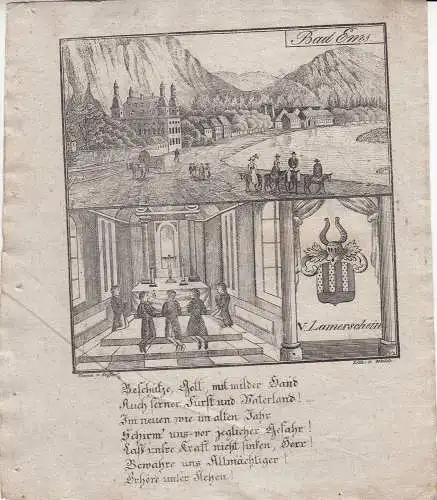 Bad Ems
V. Lamerschein
Beschütze, Gott, mit milder Hand
Auch ferner Fürst und Vaterland! _
Im neuen wie im alten Jahr
Schirm' uns vor jeglicher Gefahr!
Laß unsre Kraft nicht sinken, Herr!
Bewahre uns Allmächtiger!
Erhöre unser Flehen!